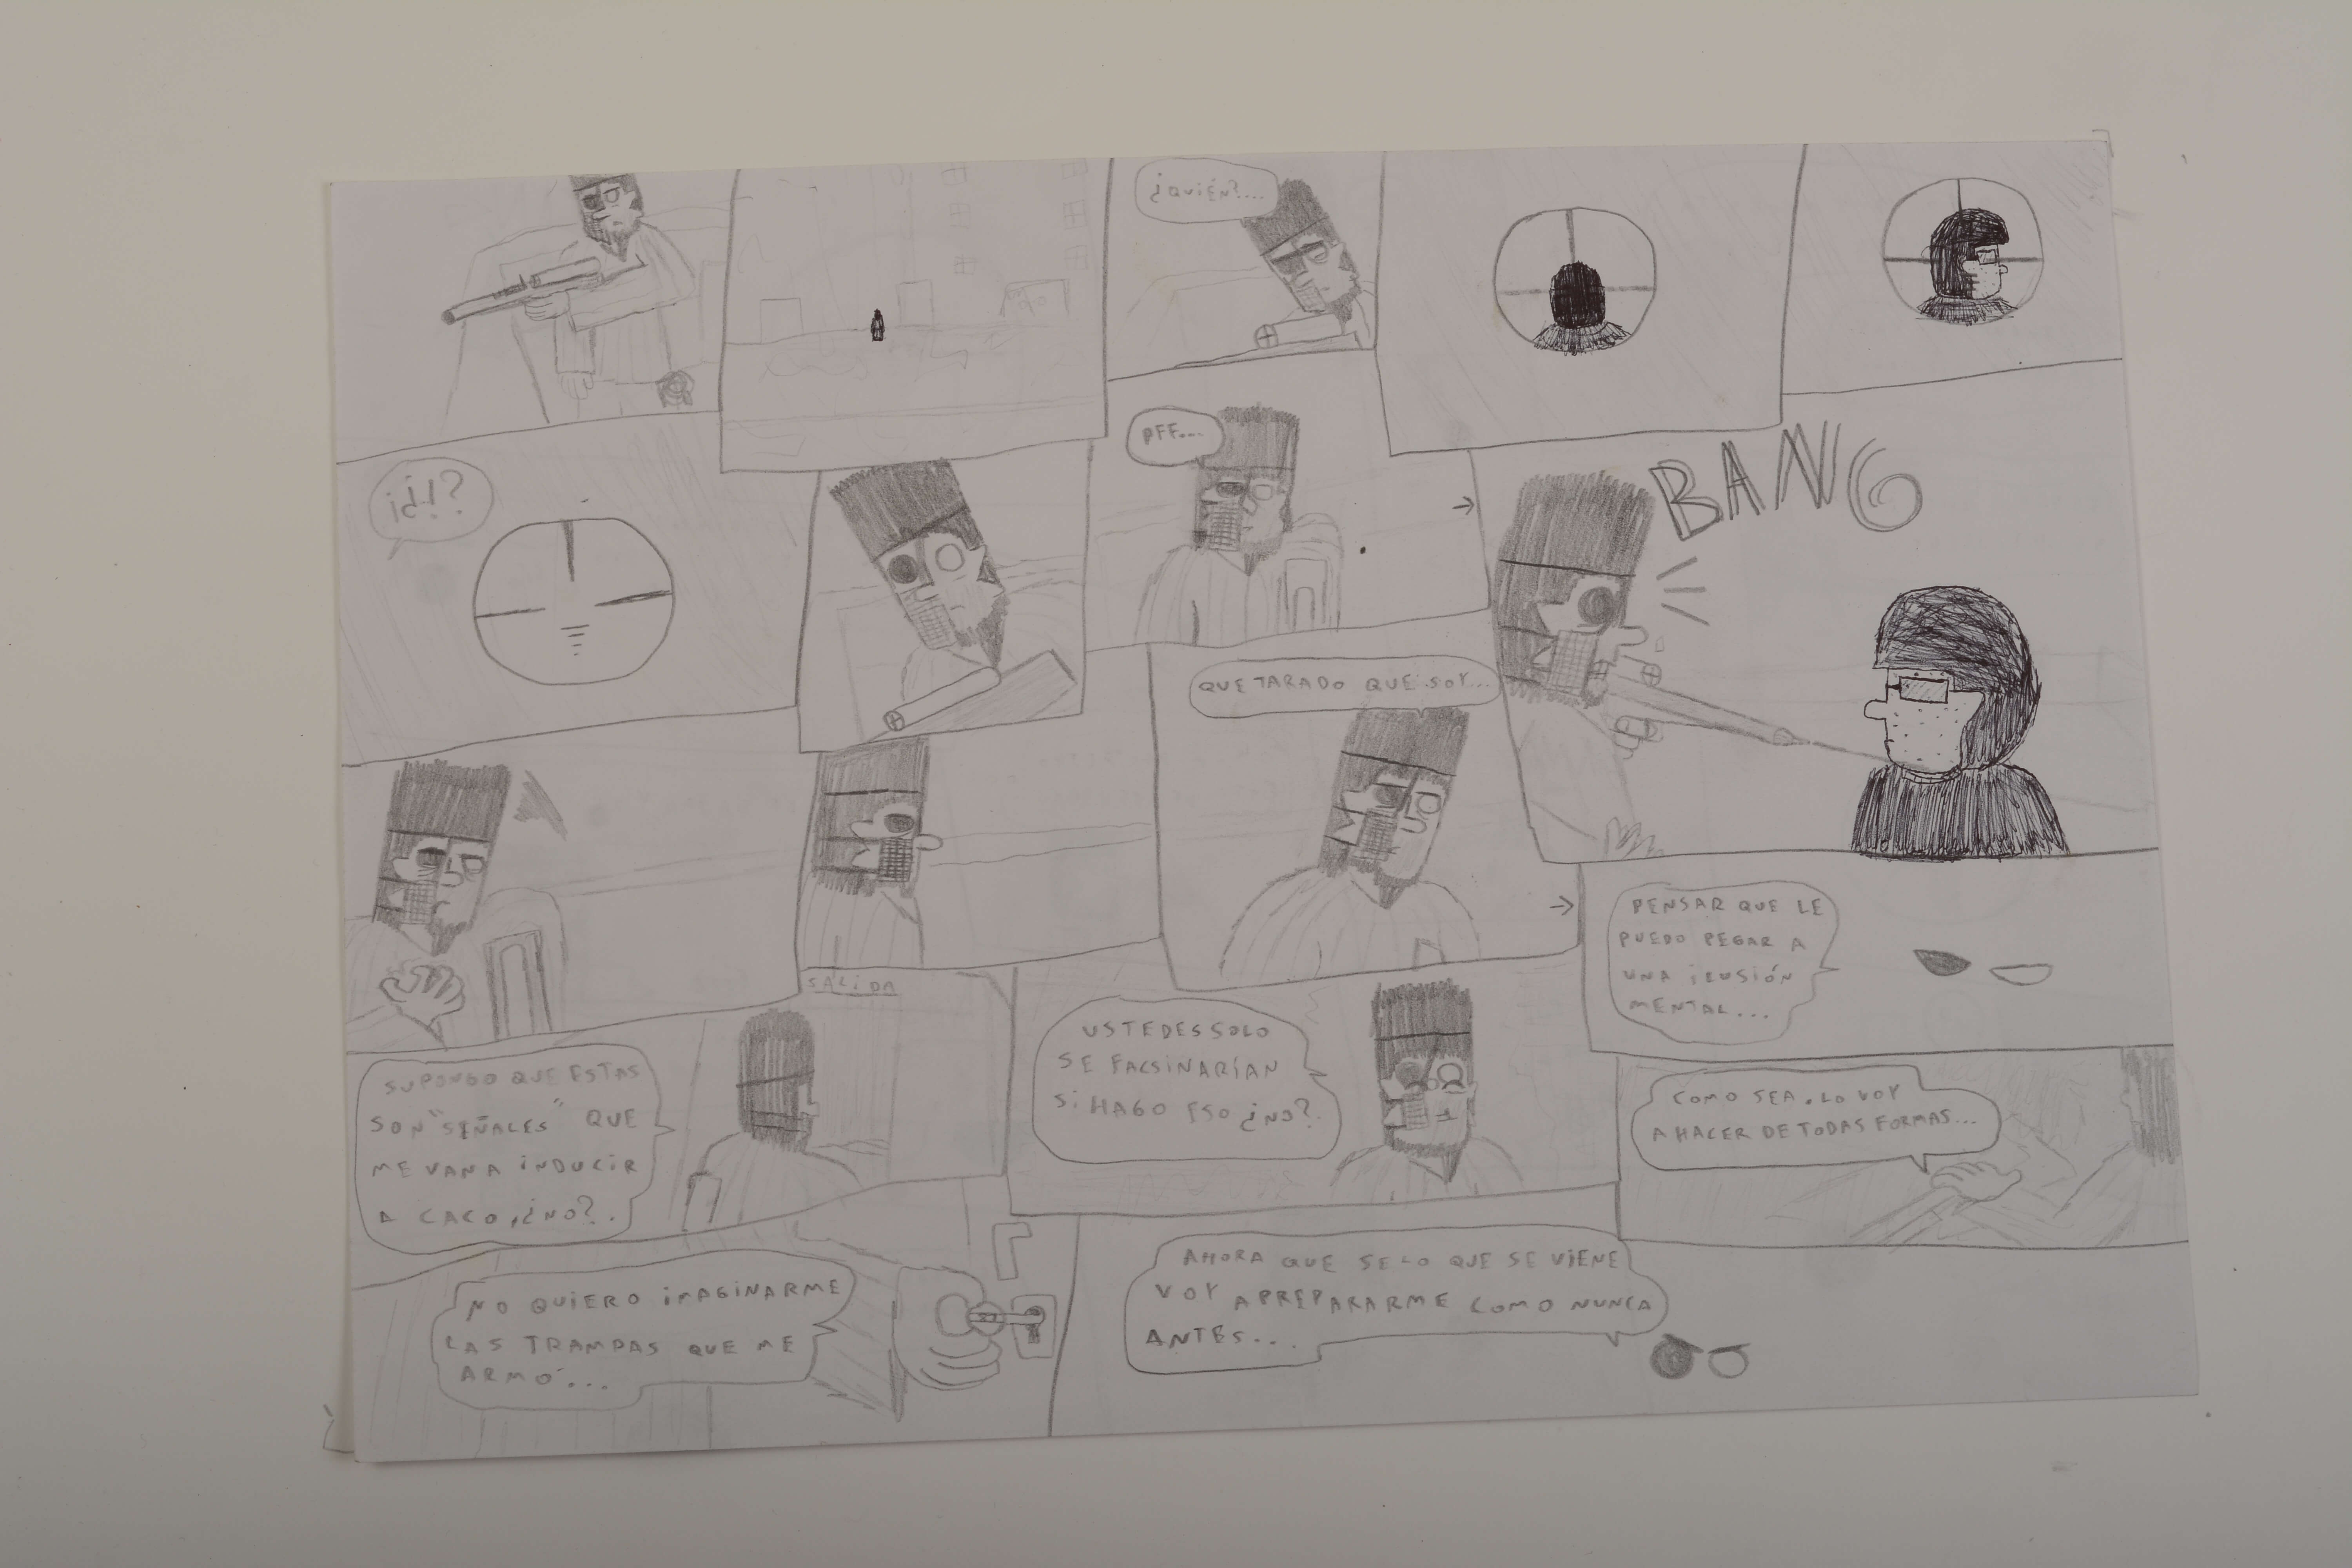 ¿QUIÉN?...
¡¿!?
PFF...
BANG
QUE TARADO QUE SOY...
PENSAR QUE LE
PUEDO PEGAR A
UNA ILUSIÓN
MENTAL...
SALIDA
SUPONGO QUE ESTAS
SON "SEÑALES" QUE
ME VAN A INDUCIR
A CACO, ¿NO?.
USTEDES SOLO
SE FACSINARÍAN
SI HAGO ESO ¿NO?.
COMO SEA, LO VOY
A HACER DE TODAS FORMAS...
NO QUIERO IMAGINARME
LAS TRAMPAS QUE ME
ARMÓ...
AHORA QUE SE LO QUE SE VIENE
VOY A PREPARARME COMO NUNCA
ANTES...